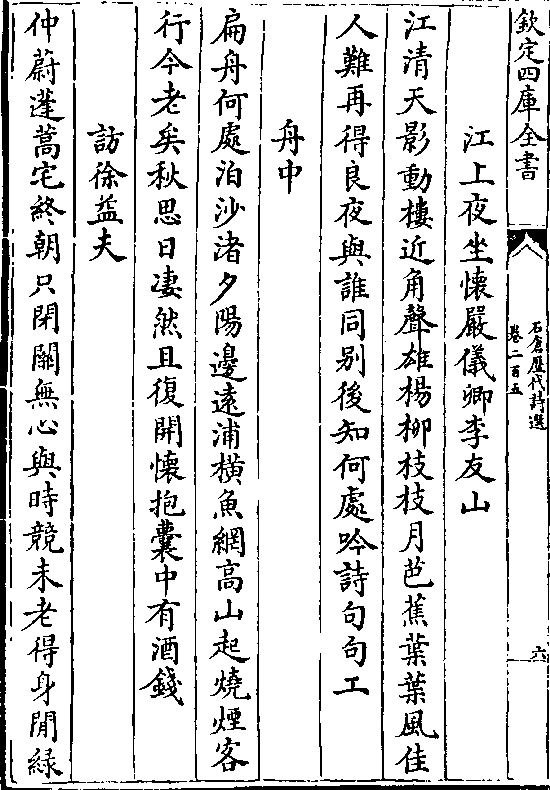 欽定四庫全書
石倉歷代詩選
卷二百五
六
江上夜坐懷嚴儀卿李友山
江清天影動樓近角聲雄楊柳枝枝月芭蕉葉葉風佳
人難再得良夜與誰同別後知何處吟詩句句工
舟中
扁舟何處泊沙渚夕陽邊遠浦橫魚網高山起燒煙客
行今老矣秋思日凄然且復開懷抱囊中有酒錢
訪徐益夫
仲蔚蓬蒿宅終朝只閉關無心與時競未老得身閒緑